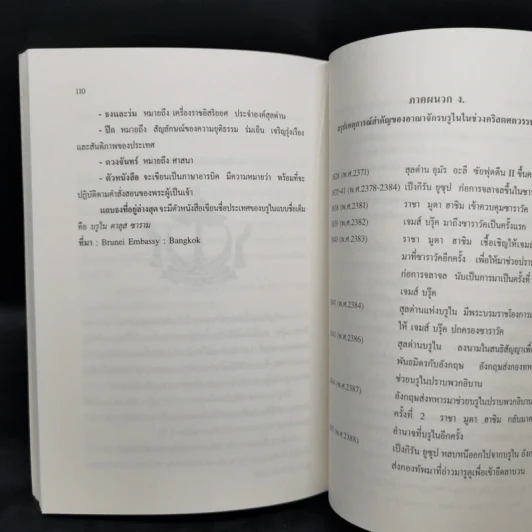 110
- ธงและร่ม หมายถึง เครื่องราชอิสริยยศ ประจำองค์สุลต่าน
- ปีก หมายถึง สัญลักษณ์ของความยุติธรรม ร่มเย็น เจริญรุ่งเรือง
และสันติภาพของประเทศ
- ดวงจันทร์ หมายถึง ศาสนา
- ตัวหนังสือ จะเขียนเป็นภาษาอารบิค มีความหมายว่า พร้อมที่จะ
ปฏิบัติตามคำสั่งสอนของพระผู้เป็นเจ้า
แถบธงที่อยู่ล่างสุด จะมีตัวหนังสือเขียนชื่อประเทศของบรูไนแบบชื่อเต็ม
คือ บรูไน ดาลุส ซาราม
ที่มา : Brunei Embassy : Bangkok
ภาคผนวก ง.
สรุปเหตุการณ์สำคัญของอาณาจักรบรูไนในช่วงคริสตศตวรรษ
(พ.ศ.2371) สุลต่าน อุมัร อะลี ซัยฟุดดีน II ขึ้น
(พ.ศ.2378-2384) เป็งกิรัน ยูซุป ก่อการจลาจลขึ้นใน
(พ.ศ.2381) ราชา มูดา ฮาซิม เข้าควบคุมซาราวัค
(พ.ศ.2382) เจมส์ บรุ๊ค มาถึงซาราวัคเป็นครั้งแรก
(พ.ศ.2383) ราชา มูดา ฮาซิม เชื้อเชิญให้เจมส์
มาที่ซาราวัคอีกครั้ง เพื่อให้มาช่วย
ก่อการจลาจล นับเป็นการมาเป็นครั้งที่
เจมส์ บรุ๊ค
(พ.ศ.2384) สุลต่านแห่งบรูไน มีพระบรมราชโองการ
ให้ เจมส์ บรุ๊ค ปกครองซาราวัค
(พ.ศ.2386) สุลต่านบรูไน ลงนามในสนธิสัญญา
พันธมิตรกับอังกฤษ อังกฤษส่งกองทหาร
ช่วยบรูไนปราบพวกอิบาน
(พ.ศ.2387) อังกฤษส่งทหารมาช่วยบรูไนปราบพวกอิบาน
ครั้งที่ 2 ราชา มูดา ฮาซิม กลับมา
อำนาจที่บรูไนอีกครั้ง
(พ.ศ.2388) เป็งกิรัน ยูซุป หลบหนีออกไปจากบรูไน
ส่งกองทัพมาที่อ่าวมารูดูเพื่อเข้ายึดลาบวน